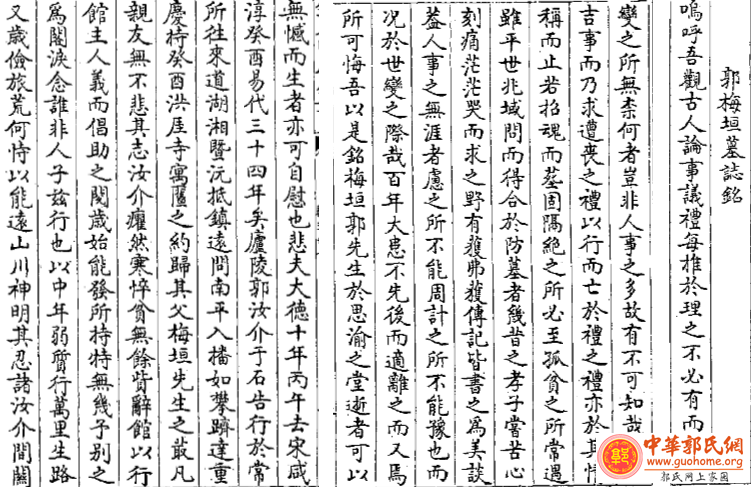 郭梅垣墓誌銘
嗚呼吾觀古人論事議禮每推於理之不必有而
變之所無柰何者豈非人事之多故有不可知哉
吉事而乃求遭喪之禮以行而亡於禮之禮亦於其情
稱而止若招魂而墓固隔絶之所必至孤貧之所常遇
雖平世兆域問而得合於防墓者幾昔之孝子嘗苦心
刻痛茫茫哭而求之野有獲弗獲傳記皆書之為美談
葢人事之無涯者慮之所不能周計之所不能豫也而
况於世變之際哉百年大患不先後而適離之而又焉
所可悔吾以是銘梅垣郭先生於思渝之堂逝者可以
無憾而生者亦可自慰也悲夫大德十年丙午去宋咸
淳癸酉易代三十四年矣廬陵郭汝介于石告行於常
所往來道湖湘暨沅抵鎮遠問南平入播如攀躋達重
慶持癸酉洪厓寺寓壐之約歸其父梅垣先生之菆凡
親友無不悲其志汝介癯然寒悴貧無餘貲辭館以行
館主人義而倡助之閱歲始能發所持特無幾予別之
為閣淚念誰非人子兹行也以中年弱質行萬里生路
又歲儉旅荒何恃以能遠山川神明其忍諸汝介間關
中華郭氏網
www.guohome.org
郭氏网上家園